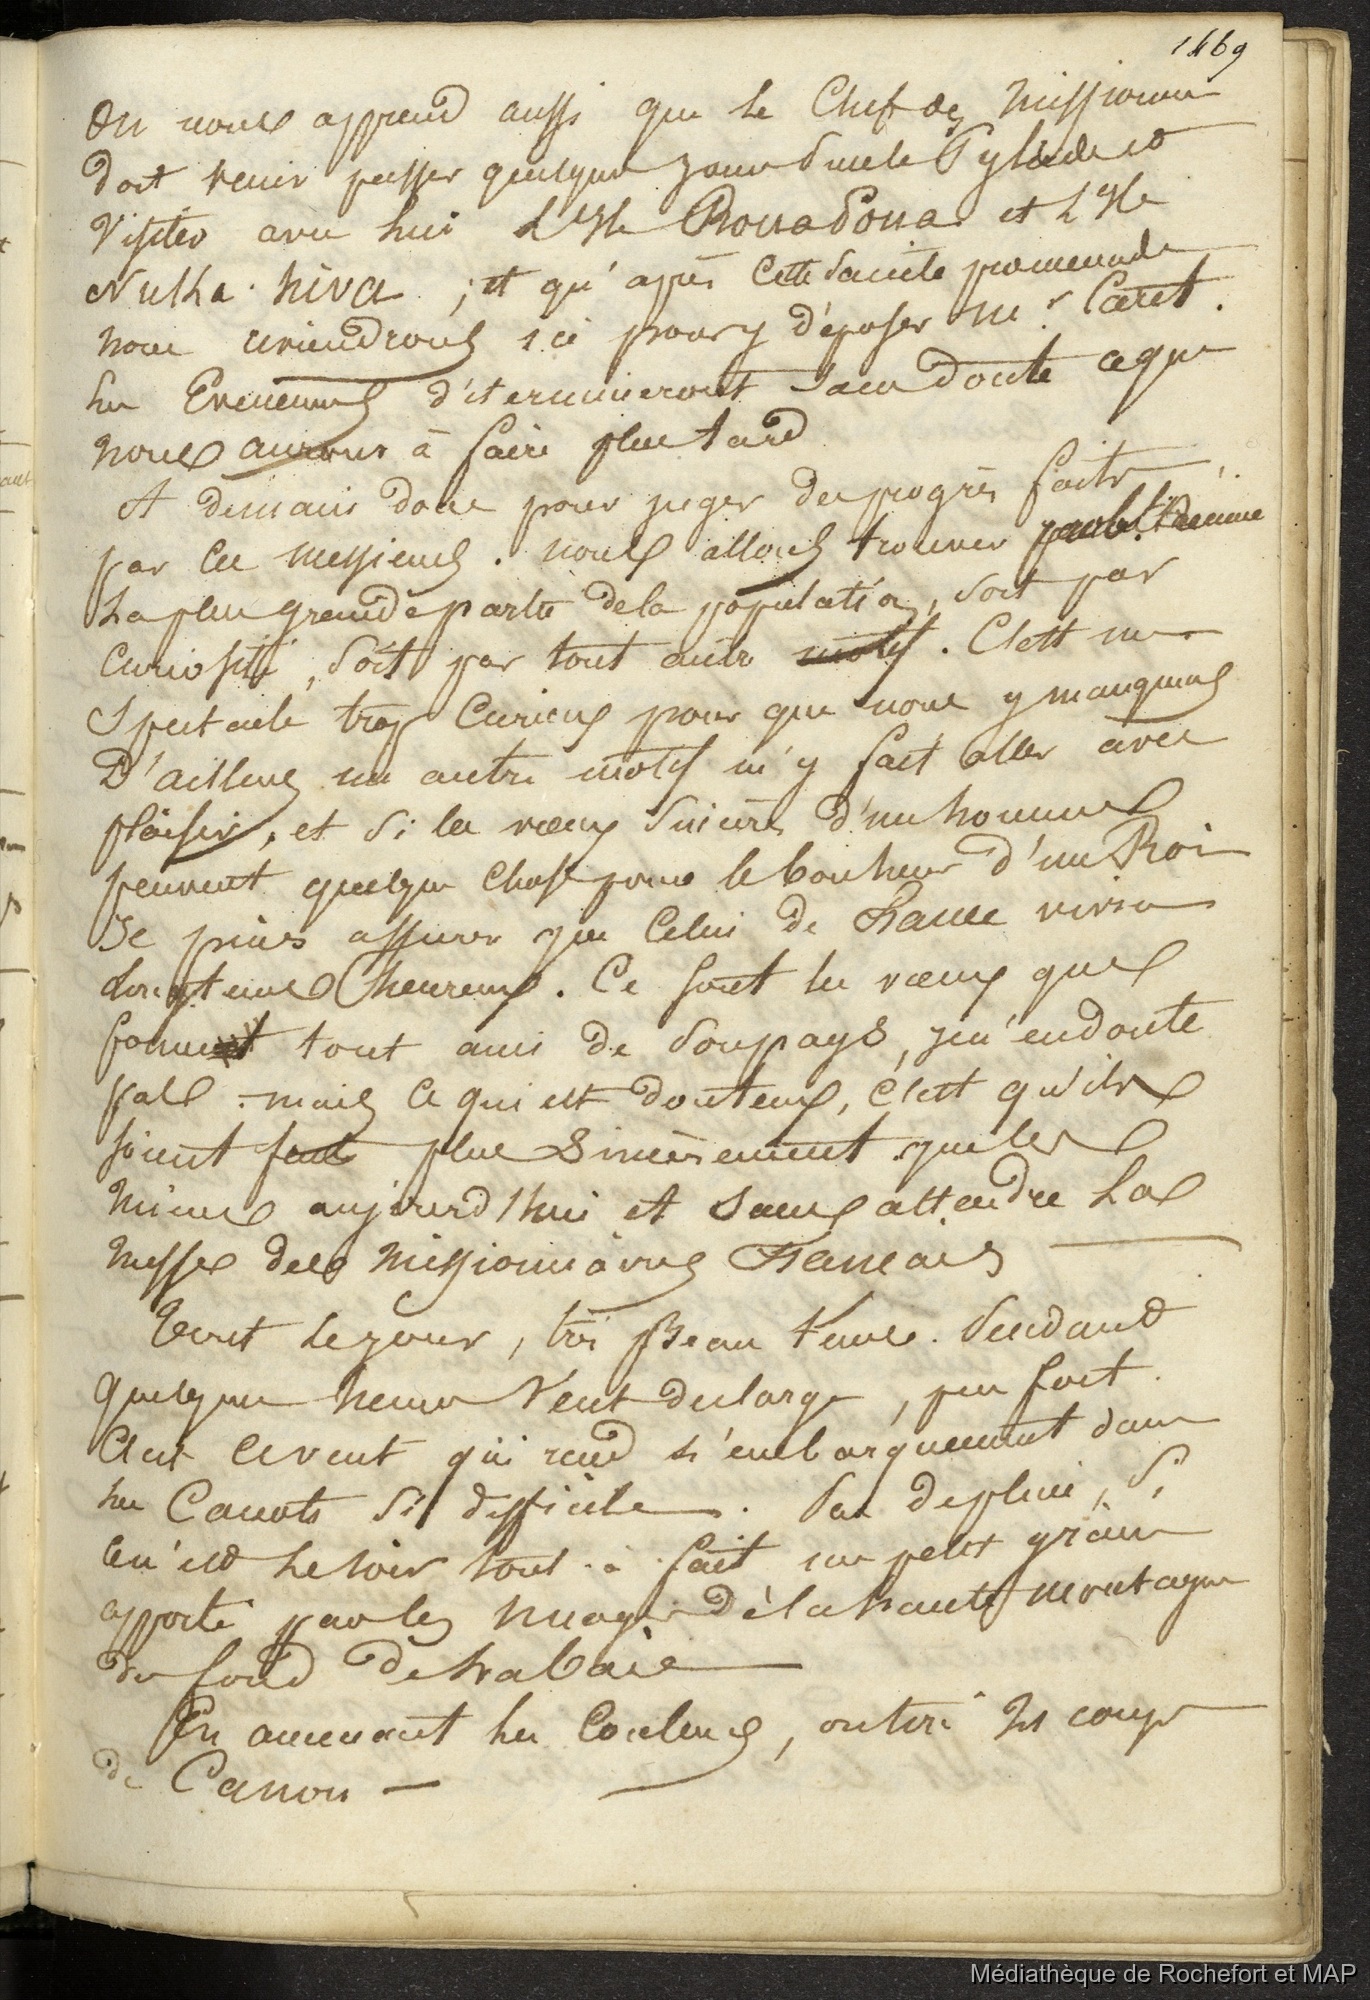 1469
On nous apprend aussi que le Chef des Missionn
doit venir passer quelques jours sur le Pylade et
Visiter avec lui L'Isle Roua Poua et L'Isle
Nuka-hiva ; et qu'après Cette Sainte promenade
nous reviendrons ici pour y déposer Mr Caret.
Les Evenemens détermineront Sans doute ce que
nous aurons à faire plus tard
A demain donc pour juger des progrès faits
par ces messieurs. nous allons trouver
La plus grande partie de la population, soit par
Curiosité, soit par tout autre motif. C'est un
Spectacle trop Curieux pour que nous y manquions
D'ailleurs un autre motif m'y fait aller avec
plaisir, et Si les vœux Sincères d'un homme
peuvent quelque chose pour le bonheur d'un Roi
Je puis assurer que Celui de France vivra
longtems heureux. Ce sont les vœux que
forment tout ami de Son pays, je n'en doute
pas. mais ce qui est douteux, C'est qu'ils
soient plus Sincèrement que les
miens aujourd'hui et Sans attendre La
Messe des Missionnaires Français
Tout le jour, très Beau tems. Pendant
quelques heures Vent du large, peu fort.
C'est ce vent qui rend l'embarquement dans
les Canots Si difficile. Pas de pluie, Si
Ce n'est le soir tout à fait un petit grain
apporté par les nuages de la haute montagne
du fond de la baie
En amenant les Couleurs, on tire 21 coups
de Canon —
Médiathèque de Rochefort et MAP